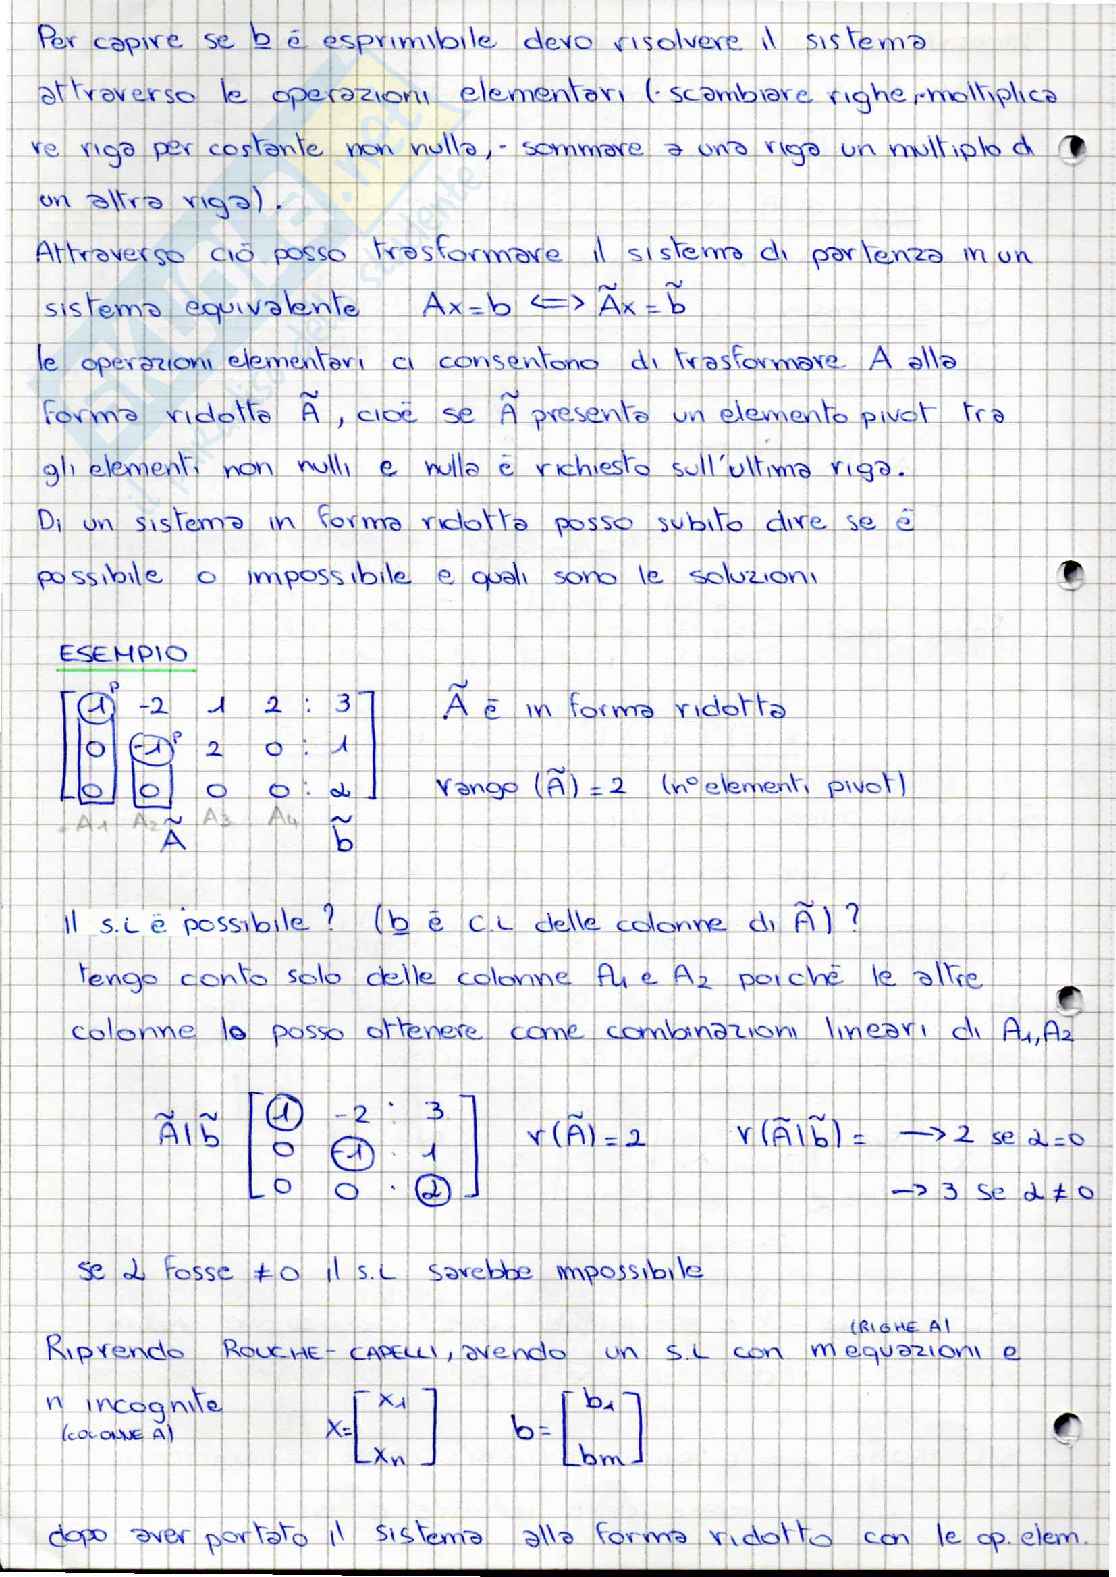 Per capire se b è esprimibile devo risolvere il sistema
attraverso le operazioni elementari (·scambiare righe,·moltiplica
re riga per costante non nulla,· sommare a una riga un multiplo di
un altra riga).
Attraverso ciò posso trasformare il sistema di partenza in un
sistema equivalente Ax=b <=> Ãx=b̃
le operazioni elementari ci consentono di trasformare A alla
forma ridotta Ã, cioè se Ã presenta un elemento pivot tra
gli elementi non nulli e nulla è richiesto sull'ultima riga.
Di un sistema in forma ridotta posso subito dire se è
possibile o impossibile e quali sono le soluzioni
ESEMPIO
1 p -2 1 2 : 3 Ã è in forma ridotta
0 -1 p 2 0 : 1
0 0 0 0 : α rango (Ã) = 2 (n° elementi pivot)
A1 A2 A3 A4
Ã b̃
Il s.l è possibile? (b è c.l delle colonne di Ã)?
tengo conto solo delle colonne A1 e A2 poiché le altre
colonne le posso ottenere come combinazioni lineari di A1,A2
Ã|b̃ [1 -2 : 3] r(Ã)=2 r(Ã|b̃)= -> 2 se α=0
0 -1 : 1
0 0 · α -> 3 se α ≠ 0
se α fosse ≠0 il s.l sarebbe impossibile
(RIGHE A)
Riprendo ROUCHE-CAPELLI, avendo un s.l con m equazioni e
n incognite
(COLONNE A)
x=[x1 xn] b=[b1 bm]
dopo aver portato il sistema alla forma ridotto con le op. elem.